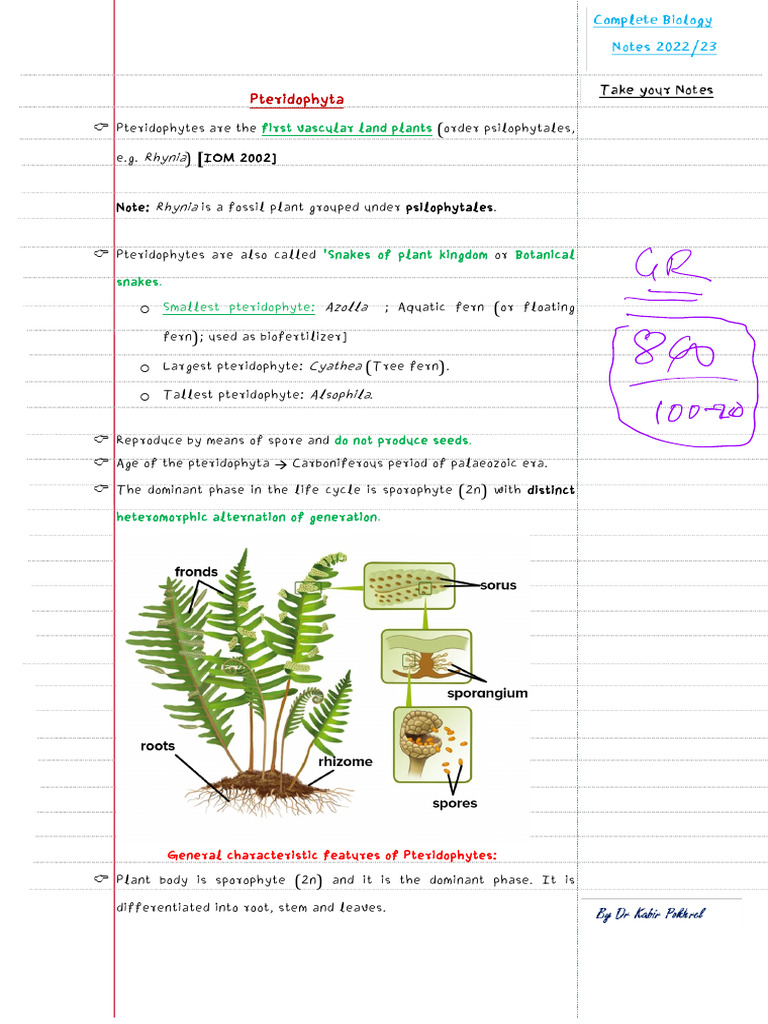 Complete Biology
Notes 2022/23
Take your Notes
Pteridophyta
Pteridophytes are the first vascular land plants (order psilophytales,
e.g. Rhynia) [IOM 2002]
Note: Rhynia is a fossil plant grouped under psilophytales.
Pteridophytes are also called 'Snakes of plant kingdom or Botanical
snakes.
o Smallest pteridophyte: Azolla ; Aquatic fern (or floating
fern); used as biofertilizer]
o Largest pteridophyte: Cyathea (Tree fern).
o Tallest pteridophyte: Alsophila.
GR
840
100-20
Reproduce by means of spore and do not produce seeds.
Age of the pteridophyta → Carboniferous period of palaeozoic era.
The dominant phase in the life cycle is sporophyte (2n) with distinct
heteromorphic alternation of generation.
fronds
sorus
sporangium
roots
rhizome
spores
General characteristic features of Pteridophytes:
Plant body is sporophyte (2n) and it is the dominant phase. It is
differentiated into root, stem and leaves.
By Dr Kabir Pokhrel